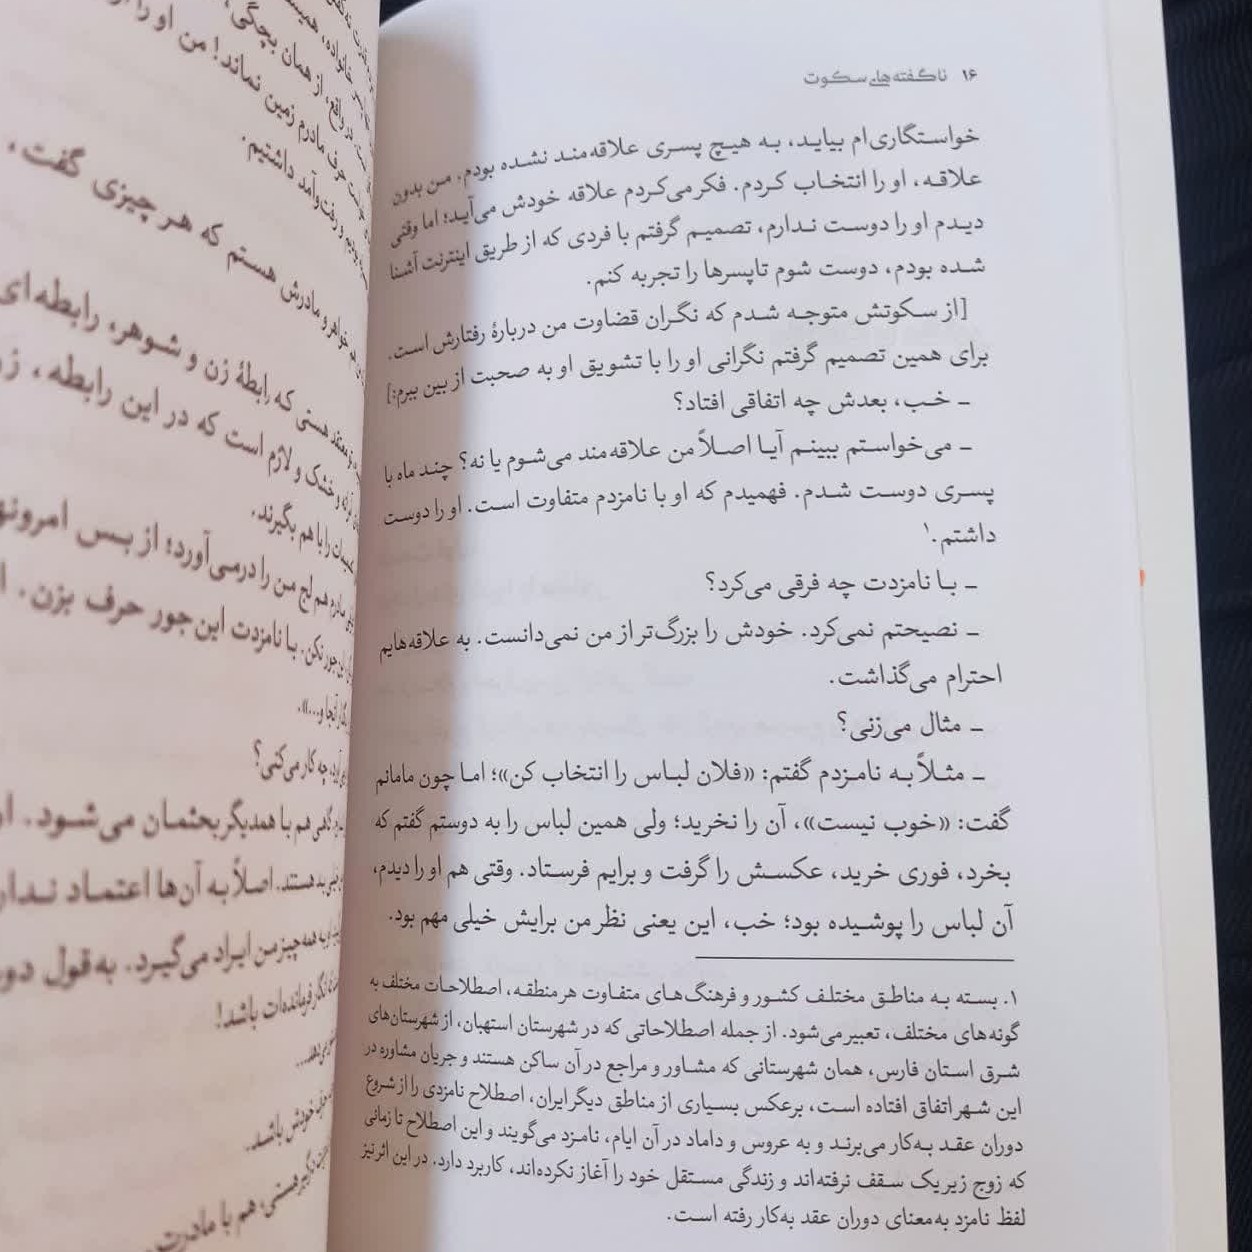 ۱۶ ناگفته‌های سکوت
خواستگاری‌ام بیاید، به هیچ پسری علاقه‌مند نشده بودم. من بدون
علاقه، او را انتخاب کردم. فکر می‌کردم علاقه خودش می‌آید؛ اما وقتی
دیدم او را دوست ندارم، تصمیم گرفتم با فردی که از طریق اینترنت آشنا
شده بودم، دوست شوم تا پسرها را تجربه کنم.
[از سکوتش متوجه شدم که نگران قضاوت من دربارۀ رفتارش است.
برای همین تصمیم گرفتم نگرانی او را با تشویق او به صحبت از بین ببرم:]
ـ خب، بعدش چه اتفاقی افتاد؟
ـ می‌خواستم ببینم آیا اصلاً من علاقه‌مند می‌شوم یا نه؟ چند ماه با
پسری دوست شدم. فهمیدم که او با نامزدم متفاوت است. او را دوست
داشتم.۱
ـ با نامزدت چه فرقی می‌کرد؟
ـ نصیحتم نمی‌کرد. خودش را بزرگ‌تر از من نمی‌دانست. به علاقه‌هایم
احترام می‌گذاشت.
ـ مثال می‌زنی؟
ـ مثلاً به نامزدم گفتم: «فلان لباس را انتخاب کن»؛ اما چون مامانم
گفت: «خوب نیست»، آن را نخرید؛ ولی همین لباس را به دوستم گفتم که
بخرد، فوری خرید، عکسش را گرفت و برایم فرستاد. وقتی هم او را دیدم،
آن لباس را پوشیده بود؛ خب، این یعنی نظر من برایش خیلی مهم بود.
۱. بسته به مناطق مختلف کشور و فرهنگ‌های متفاوت هر منطقه، اصطلاحات مختلف به
گونه‌های مختلف، تعبیر می‌شود. از جمله اصطلاحاتی که در شهرستان استهبان، از شهرستان‌های
شرق استان فارس، همان شهرستانی که مشاور و مراجع در آن ساکن هستند و جریان مشاوره در
این شهر اتفاق افتاده است، برعکس بسیاری از مناطق دیگر ایران، اصطلاح نامزدی را از شروع
دوران عقد به‌کار می‌برند و به عروس و داماد در آن ایام، نامزد می‌گویند و این اصطلاح تا زمانی
که زوج زیر یک سقف نرفته‌اند و زندگی مستقل خود را آغاز نکرده‌اند، کاربرد دارد. در این اثر نیز
لفظ نامزد به‌معنای دوران عقد به‌کار رفته است.
از همان بچگی
حرف مادرم زمین نماند! من او را
و رفت‌وآمد داشتیم.
خواهر و مادرش هستم که هر چیزی گفت،
هستی که رابطۀ زن و شوهر، رابطه‌ای
و خشک و لازم است که در این رابطه،
را با هم بگیرند.
مادرم هم لج من را درمی‌آورد؛ از بس امر و
نکن. با نامزدت این‌جور حرف بزن.
آنجا و...».
چه کار می‌کنی؟
هم با همدیگر بحثمان می‌شود.
هستند. اصلاً به آن‌ها اعتماد
به همه چیز من ایراد می‌گیرد. به‌قول
باشد!
خودش باشد.
هستی، هم با مادرت